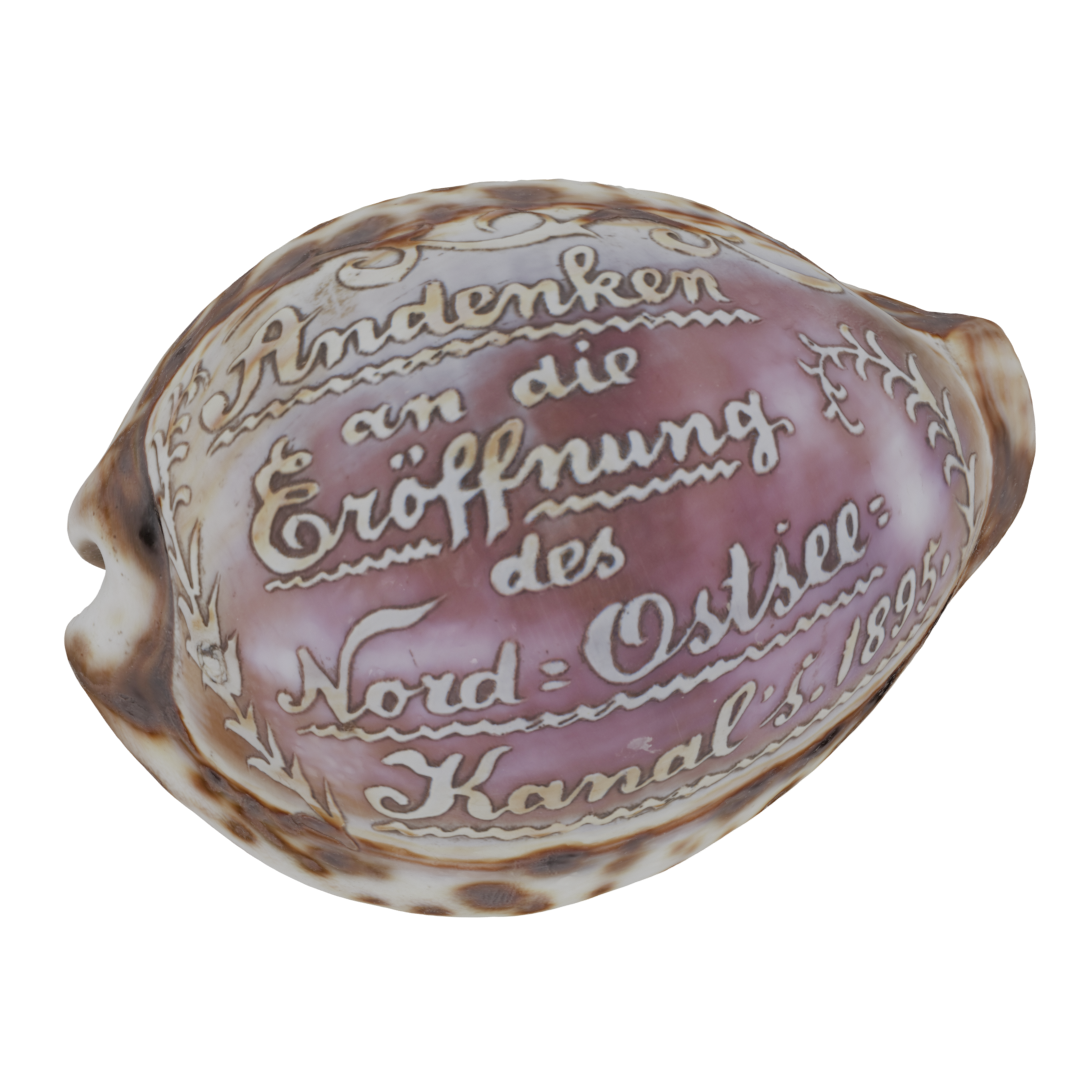 Andenken
an die
Eröffnung
des
Nord=Ostsee=
Kanal's. 1895.